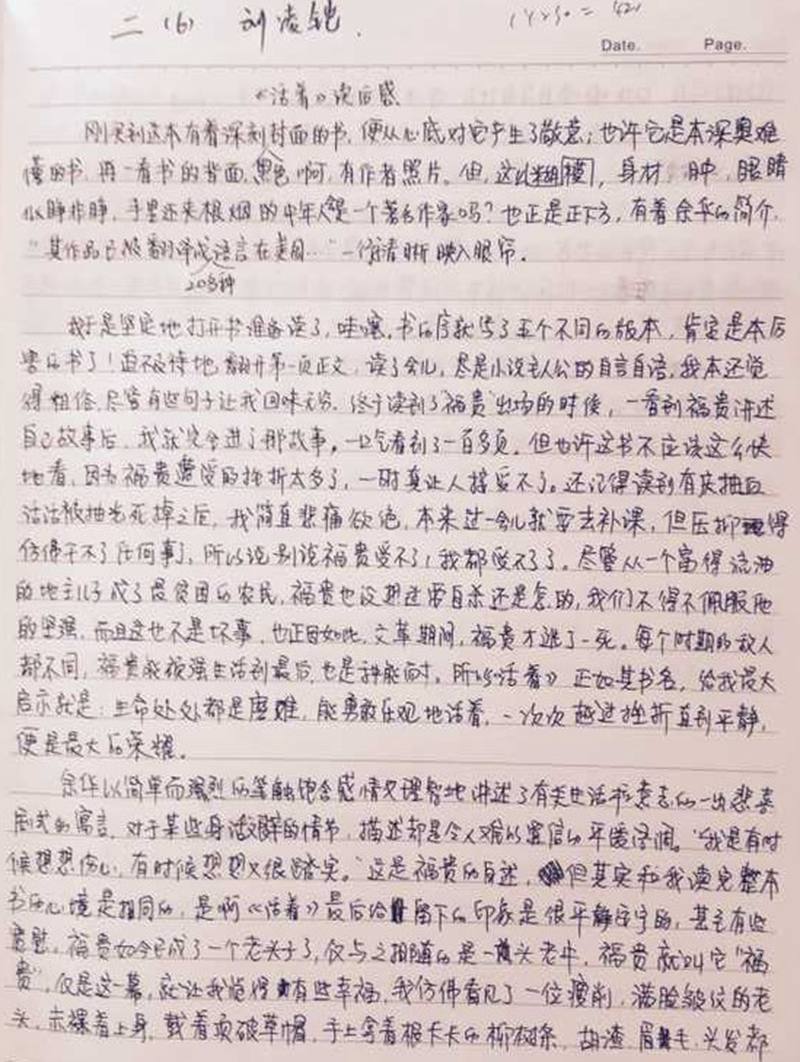 二（6） 刘凌铠.
14×30=421
Date. Page.
《活着》读后感
刚买到这本有着深刻封面的书，便从心底对它产生了敬意；也许它是本深奥难
懂的书，再一看书的背面，黑色啊，有作者照片。但，这粗，身材肿，眼睛
似睁非睁，手里还夹根烟的中年人是一个著名作家吗？也正是正下方，有着余华的简介，
“其作品已被翻译成语言在美国…”一行清晰映入眼帘。
20多种
我于是坚定地打开书准备读了，哇噻，书的序就写了五个不同的版本，肯定是本厉
害的书了！迫不及待地翻开第一页正文，读了会儿，尽是小说主人公的自言自语，我本还觉
得粗俗，尽管有些句子让我回味无穷。终于读到了“福贵”出场的时候，一看到福贵讲述
自己故事后，我就完全进了那故事，一口气看到了一百多页。但也许这书不应该这么快
地看，因为福贵遭受的挫折太多了，一时真让人接受不了。还记得读到有庆抽血
活活被抽光死掉之后，我简直悲痛欲绝，本来过一会儿就要去补课，但压抑得
仿佛干不了任何事了，所以说别说福贵受不了，我都受不了了。尽管从一个富得流油
的地主儿子成了最贫困的农民，福贵也没想过要自杀还是怎的，我们不得不佩服他
的坚强，而且这也不是坏事，也正因如此，文革期间，福贵才逃了一死。每个时期的敌人
都不同，福贵能顽强生活到最后，也是种能耐。所以《活着》正如其书名，给我最大
启示就是：生命处处都是磨难，能勇敢乐观地活着，一次次越过挫折直到平静，
便是最大的荣耀。
余华以简单而强烈的笔触饱含感情又理智地讲述了有关生活和意志的一出悲喜
剧式的寓言，对于某些身的情节，描述却是令人难以置信的平。“我是有时
候想想伤心，有时候想想又很踏实。”这是福贵的自述，但其实和我读完整本
书的心境是相同的，是啊《活着》最后给留下的印象是很平静安宁的，甚至有些
宽慰。福贵如今已成了一个老头子了，仅与之相随的是一头老牛，福贵就叫它“福
贵”，仅是这一幕，就让我觉得有些幸福，我仿佛看见了一位瘦削，满脸皱纹的老
头，赤裸着上身，戴着顶破草帽，手上拿着根长长的柳树条，胡渣，眉毛，头发都